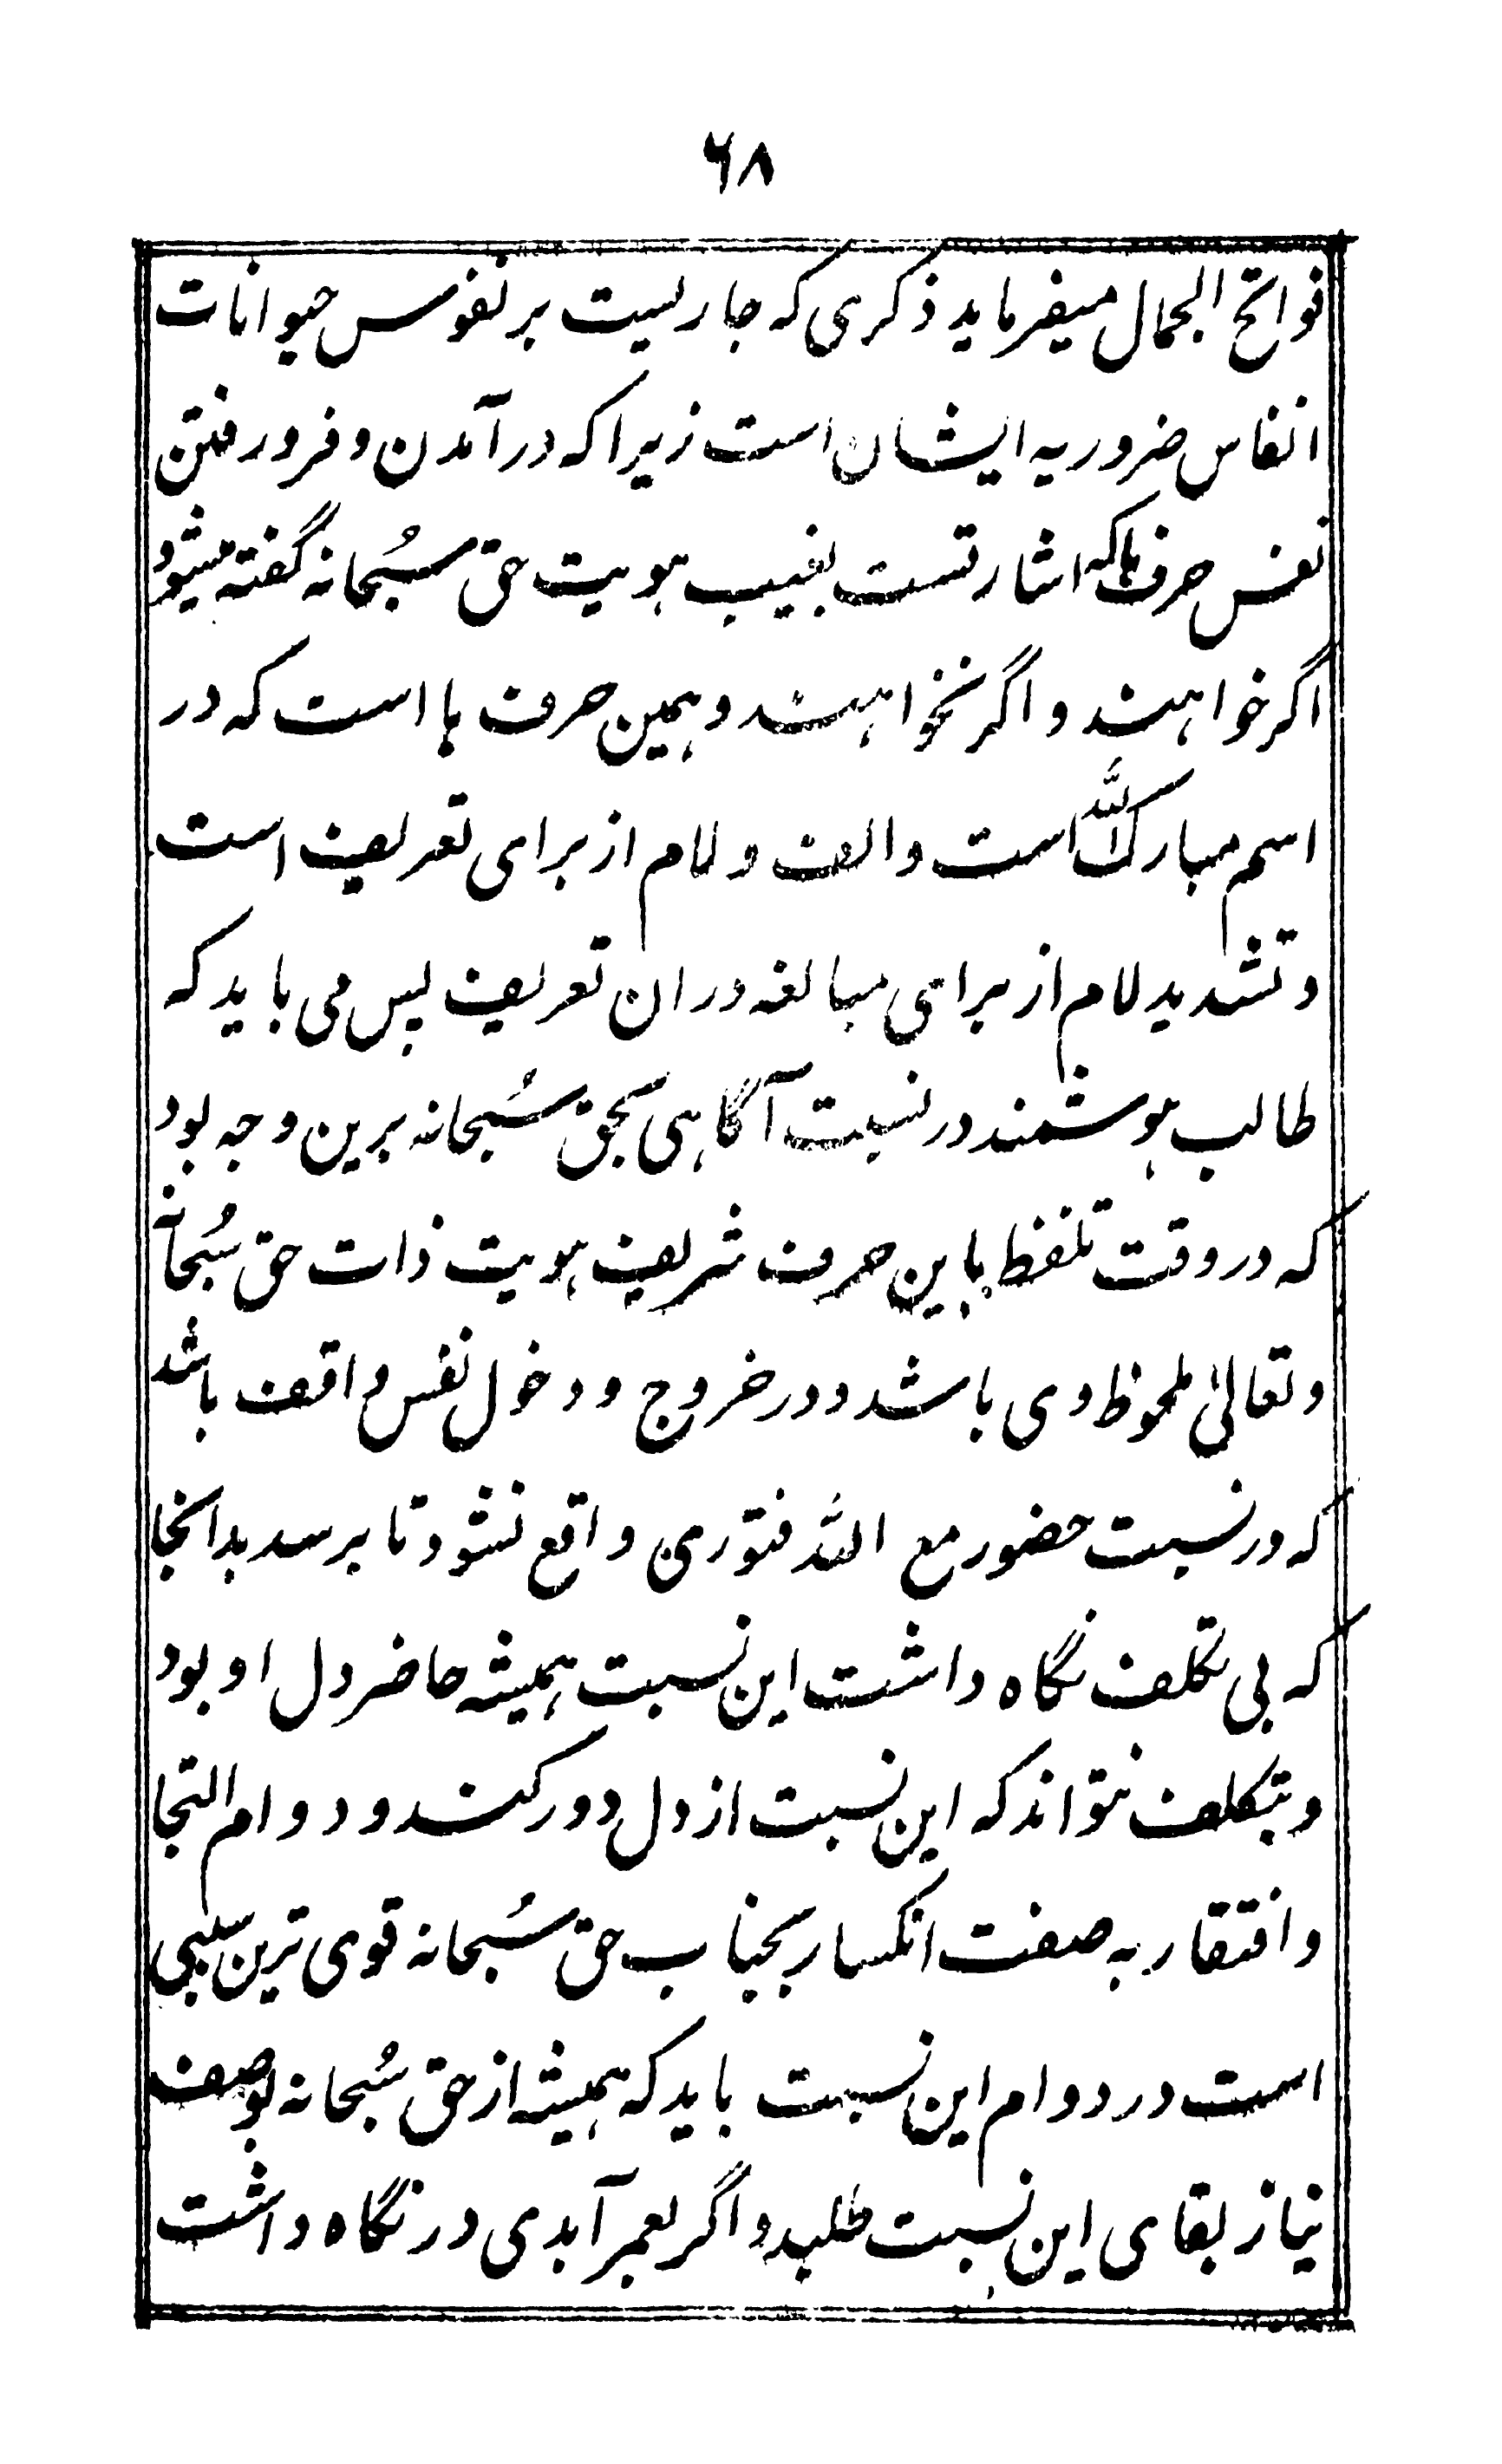 ۶۸
فواتح الجمال میفرماید ذکری که جاریست بر نفوس حیوانات
انفاس ضروریه ایشان است زیرا که در آمدن و فرو رفتن
نفس حرف ها که اشارتست بغیب هویت حق سُبحانه گفته میشود
اگر خواهند و اگر نخواهند و همین حرف ها است که در
اسم مبارک اللّٰه است و الف و لام از برای تعریف است
و تشدید لام از برای مبالغه دران تعریف پس می باید که
طالب هوشمند در نسبت آگاهی بحق سُبحانه برین وجه بود
که در وقت تلفظ باین حرف شریف هویت ذات حق سُبحانه
و تعالیٰ ملحوظ وی باشد و در خروج و دخول نفس واقف باشد
که در نسبت حضور مع اللّٰه فتوری واقع نشود تا برسد بدانجا
که بی تکلف نگاه داشت این نسبت همیشه حاضر دل او بود
و بتکلف نتواند که این نسبت از دل دور کند و دوام التجا
و افتقار به صفت انکسار بجناب حق سُبحانه قوی ترین سببی
است در دوام این نسبت باید که همیشه از حق سُبحانه بوصف
نیاز بقای این نسبت طلبد و اگر بعمر آبدی در نگاه داشت